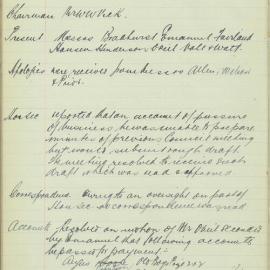 Chairman Mr W W Vick.
Present Messrs Bradhurst Emanuel Fairland
Hansen Henderson Vail Vale & Watt.
Apologies were received from Messrs Allen, McLean
&
Hon Sec reported that on account of pressure
of business, he was unable to prepare
minutes of previous Council meeting
but would submit rough draft.
The meeting resolved to receive such
draft which was read & approved
Correspondence Owing to an oversight on part of
Hon Sec no correspondence was read
Accounts Resolved on motion of Mr Vail seconded
by Emanuel that following accounts
be passed for payment